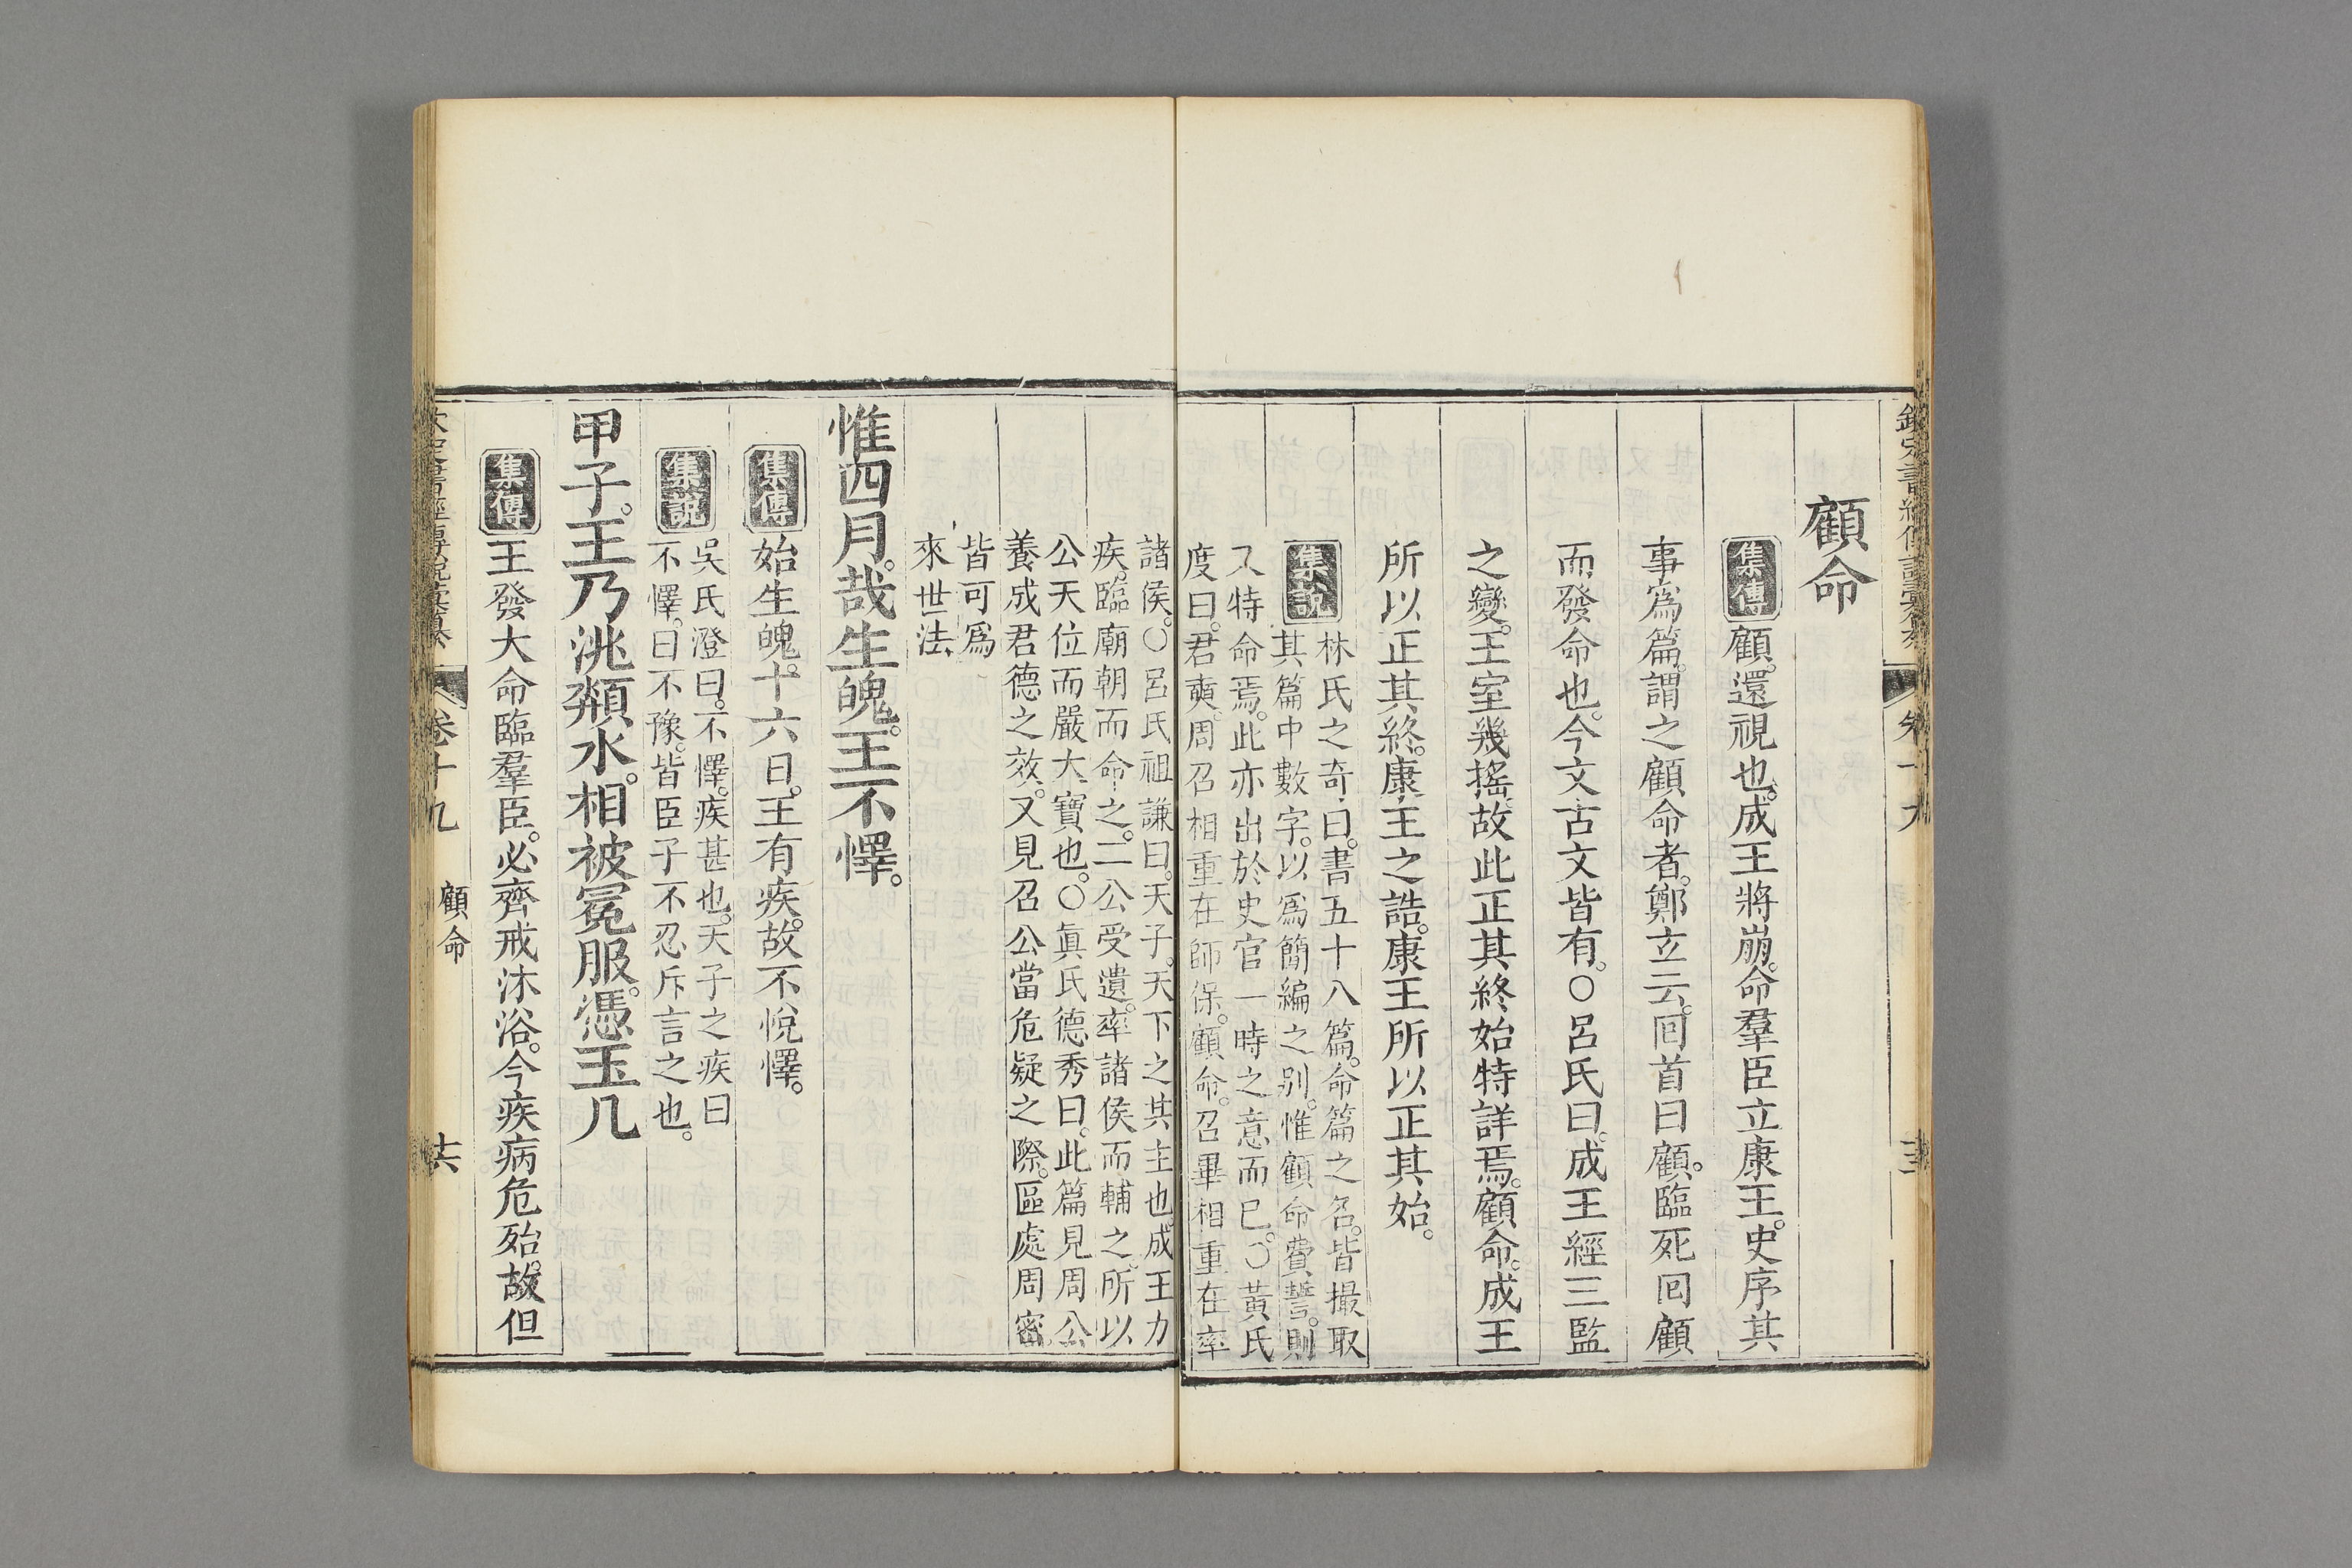 顧命
集傳 顧。還視也。成王將崩。命羣臣立康王。史序其
事爲篇。謂之顧命者。鄭玄云。回首曰顧。臨死回顧
而發命也。今文古文皆有。○呂氏曰。成王經三監
之變。王室幾搖。故此正其終始特詳焉。顧命。成王
所以正其終。康王之誥。康王所以正其始。
集說 林氏之奇曰。書五十八篇。命篇之名。皆撮取
其篇中數字。以爲簡編之別。惟顧命費誓。則
又特命焉。此亦出於史官一時之意而已。○黃氏
度曰。君奭。周召相重在師保。顧命。召畢相重在率
諸侯。○呂氏祖謙曰。天子。天下之共主也。成王力
疾。臨廟朝而命之。二公受遺。率諸侯而輔之。所以
公天位而嚴大寶也。○眞氏德秀曰。此篇見周公
養成君德之效。又見召公當危疑之際。區處周密。
皆可爲
來世法
惟四月。哉生魄。王不懌。
集傳 始生魄。十六日。王有疾。故不悅懌。
集說 吳氏澄曰。不懌。疾甚也。天子之疾曰
不懌。曰不豫。皆臣子不忍斥言之也。
甲子。王乃洮頮水。相被冕服。憑玉几
集傳 王發大命臨羣臣。必齊戒沐浴。今疾病危殆。故但
卷十九
顧命
十六